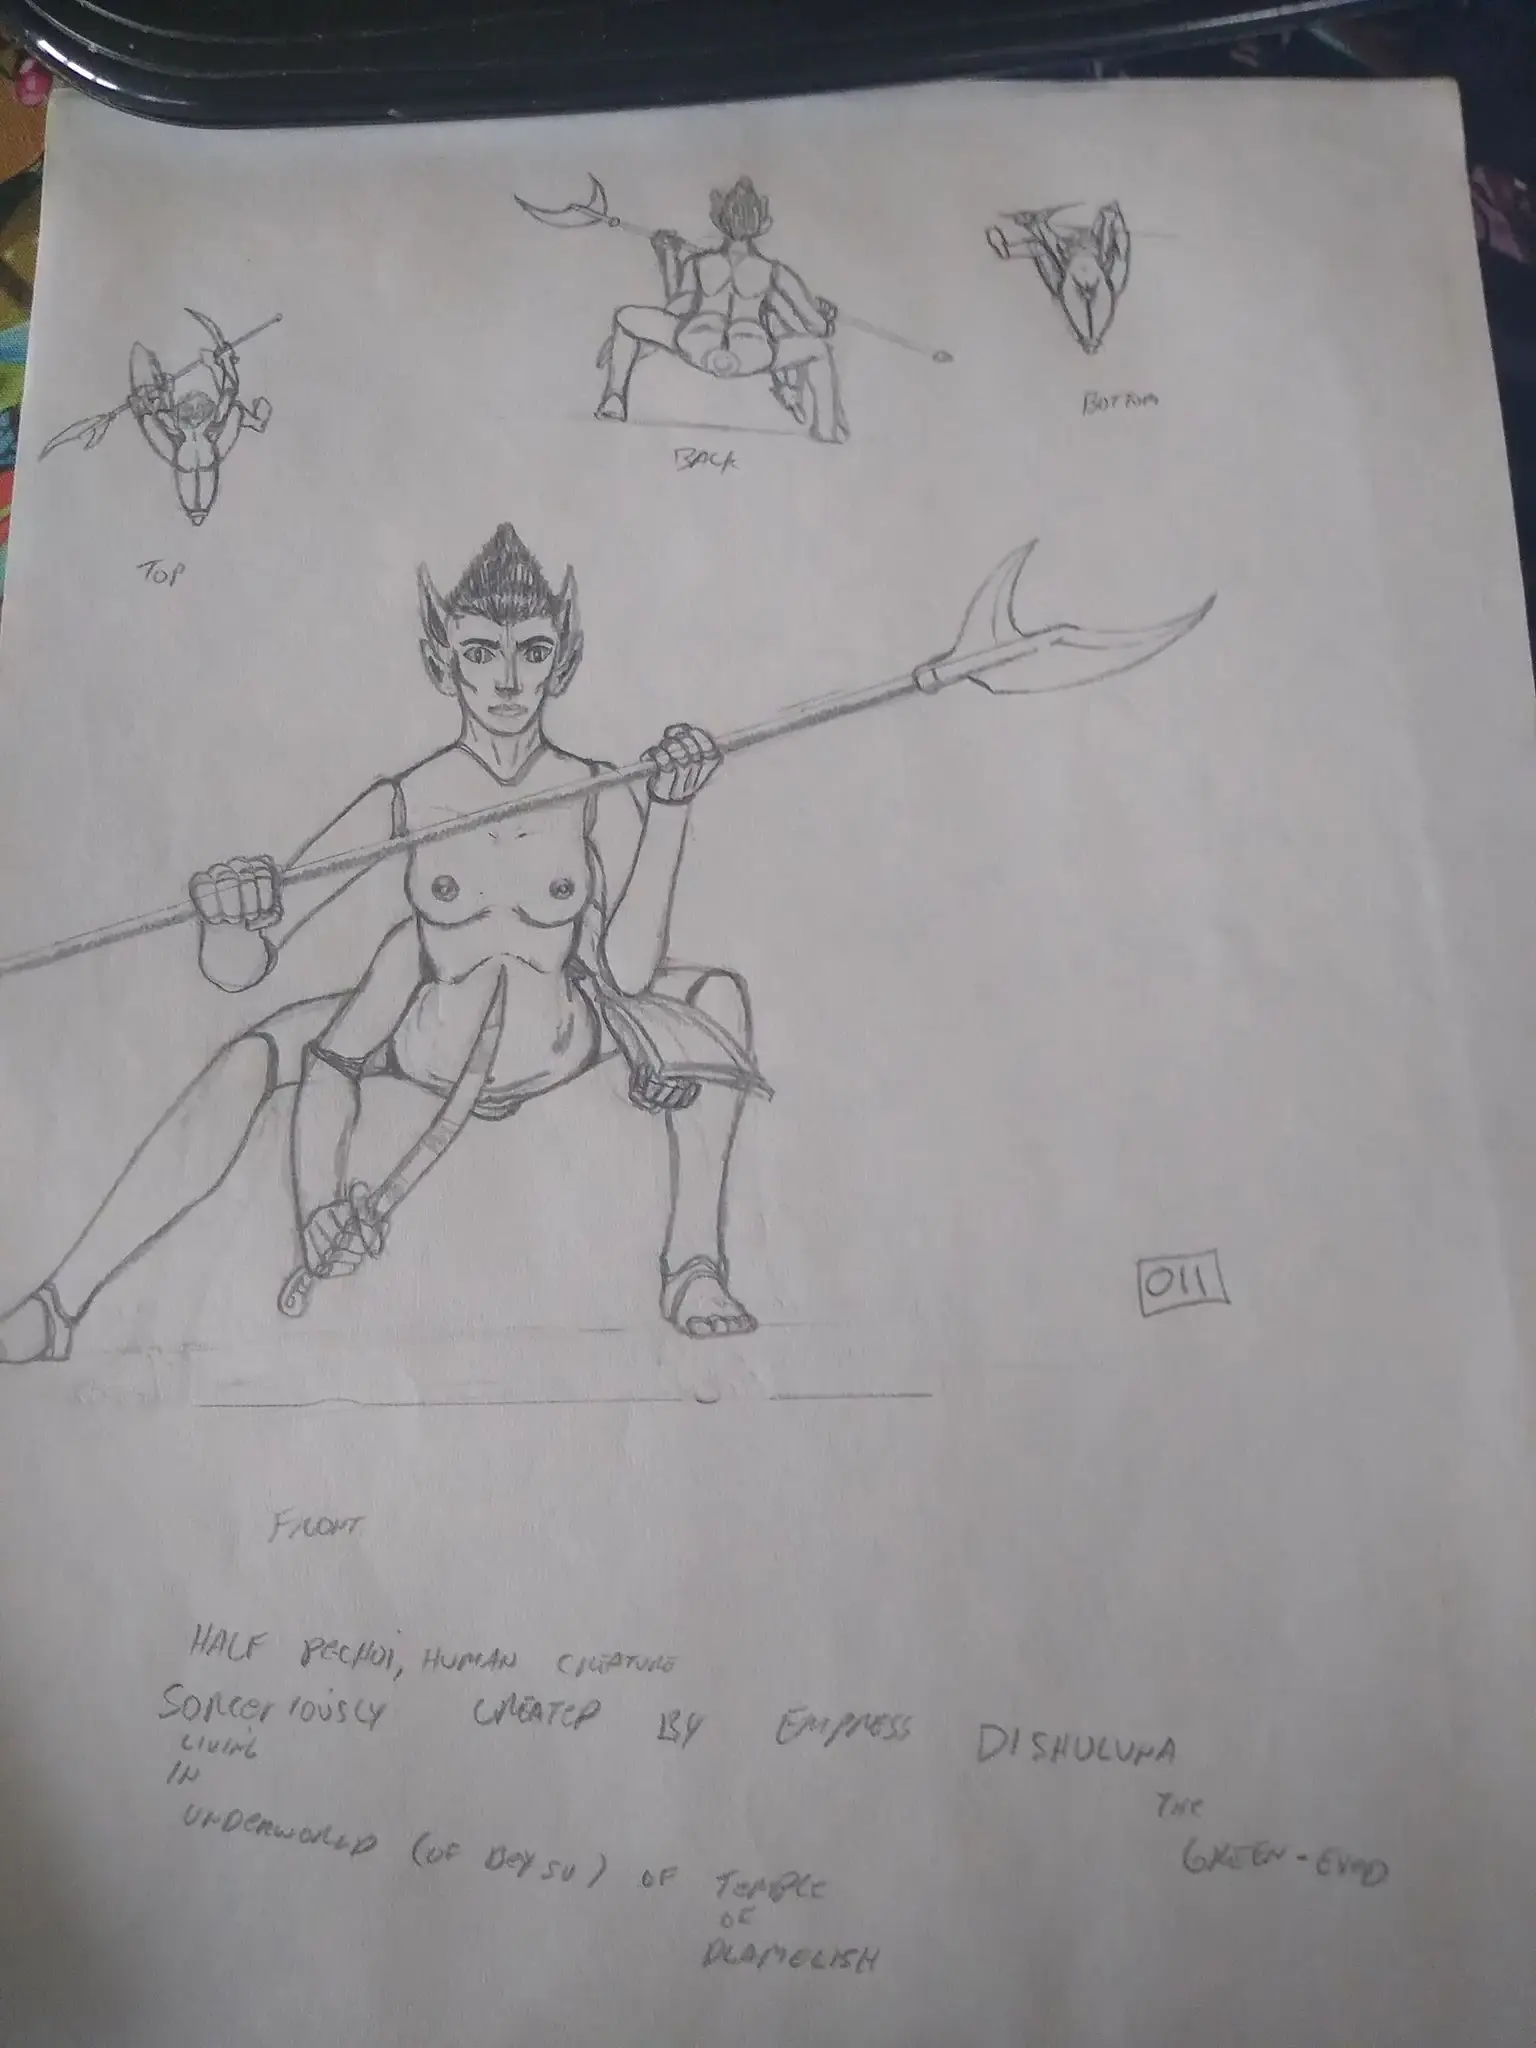 BACK
BOTTOM
TOP
011
FRONT
HALF PECHOI, HUMAN CREATURE
SORCERIOUSLY CREATED BY EMPRESS DISHULUNA
THE
GREEN-EYED
LIVING
IN
UNDERWORLD (OF BEY SU) OF TEMPLE
OF
DLAMELISH